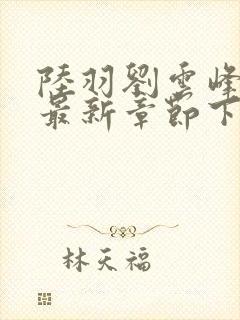 陸羽劉雲峰
最新章節下
林天福